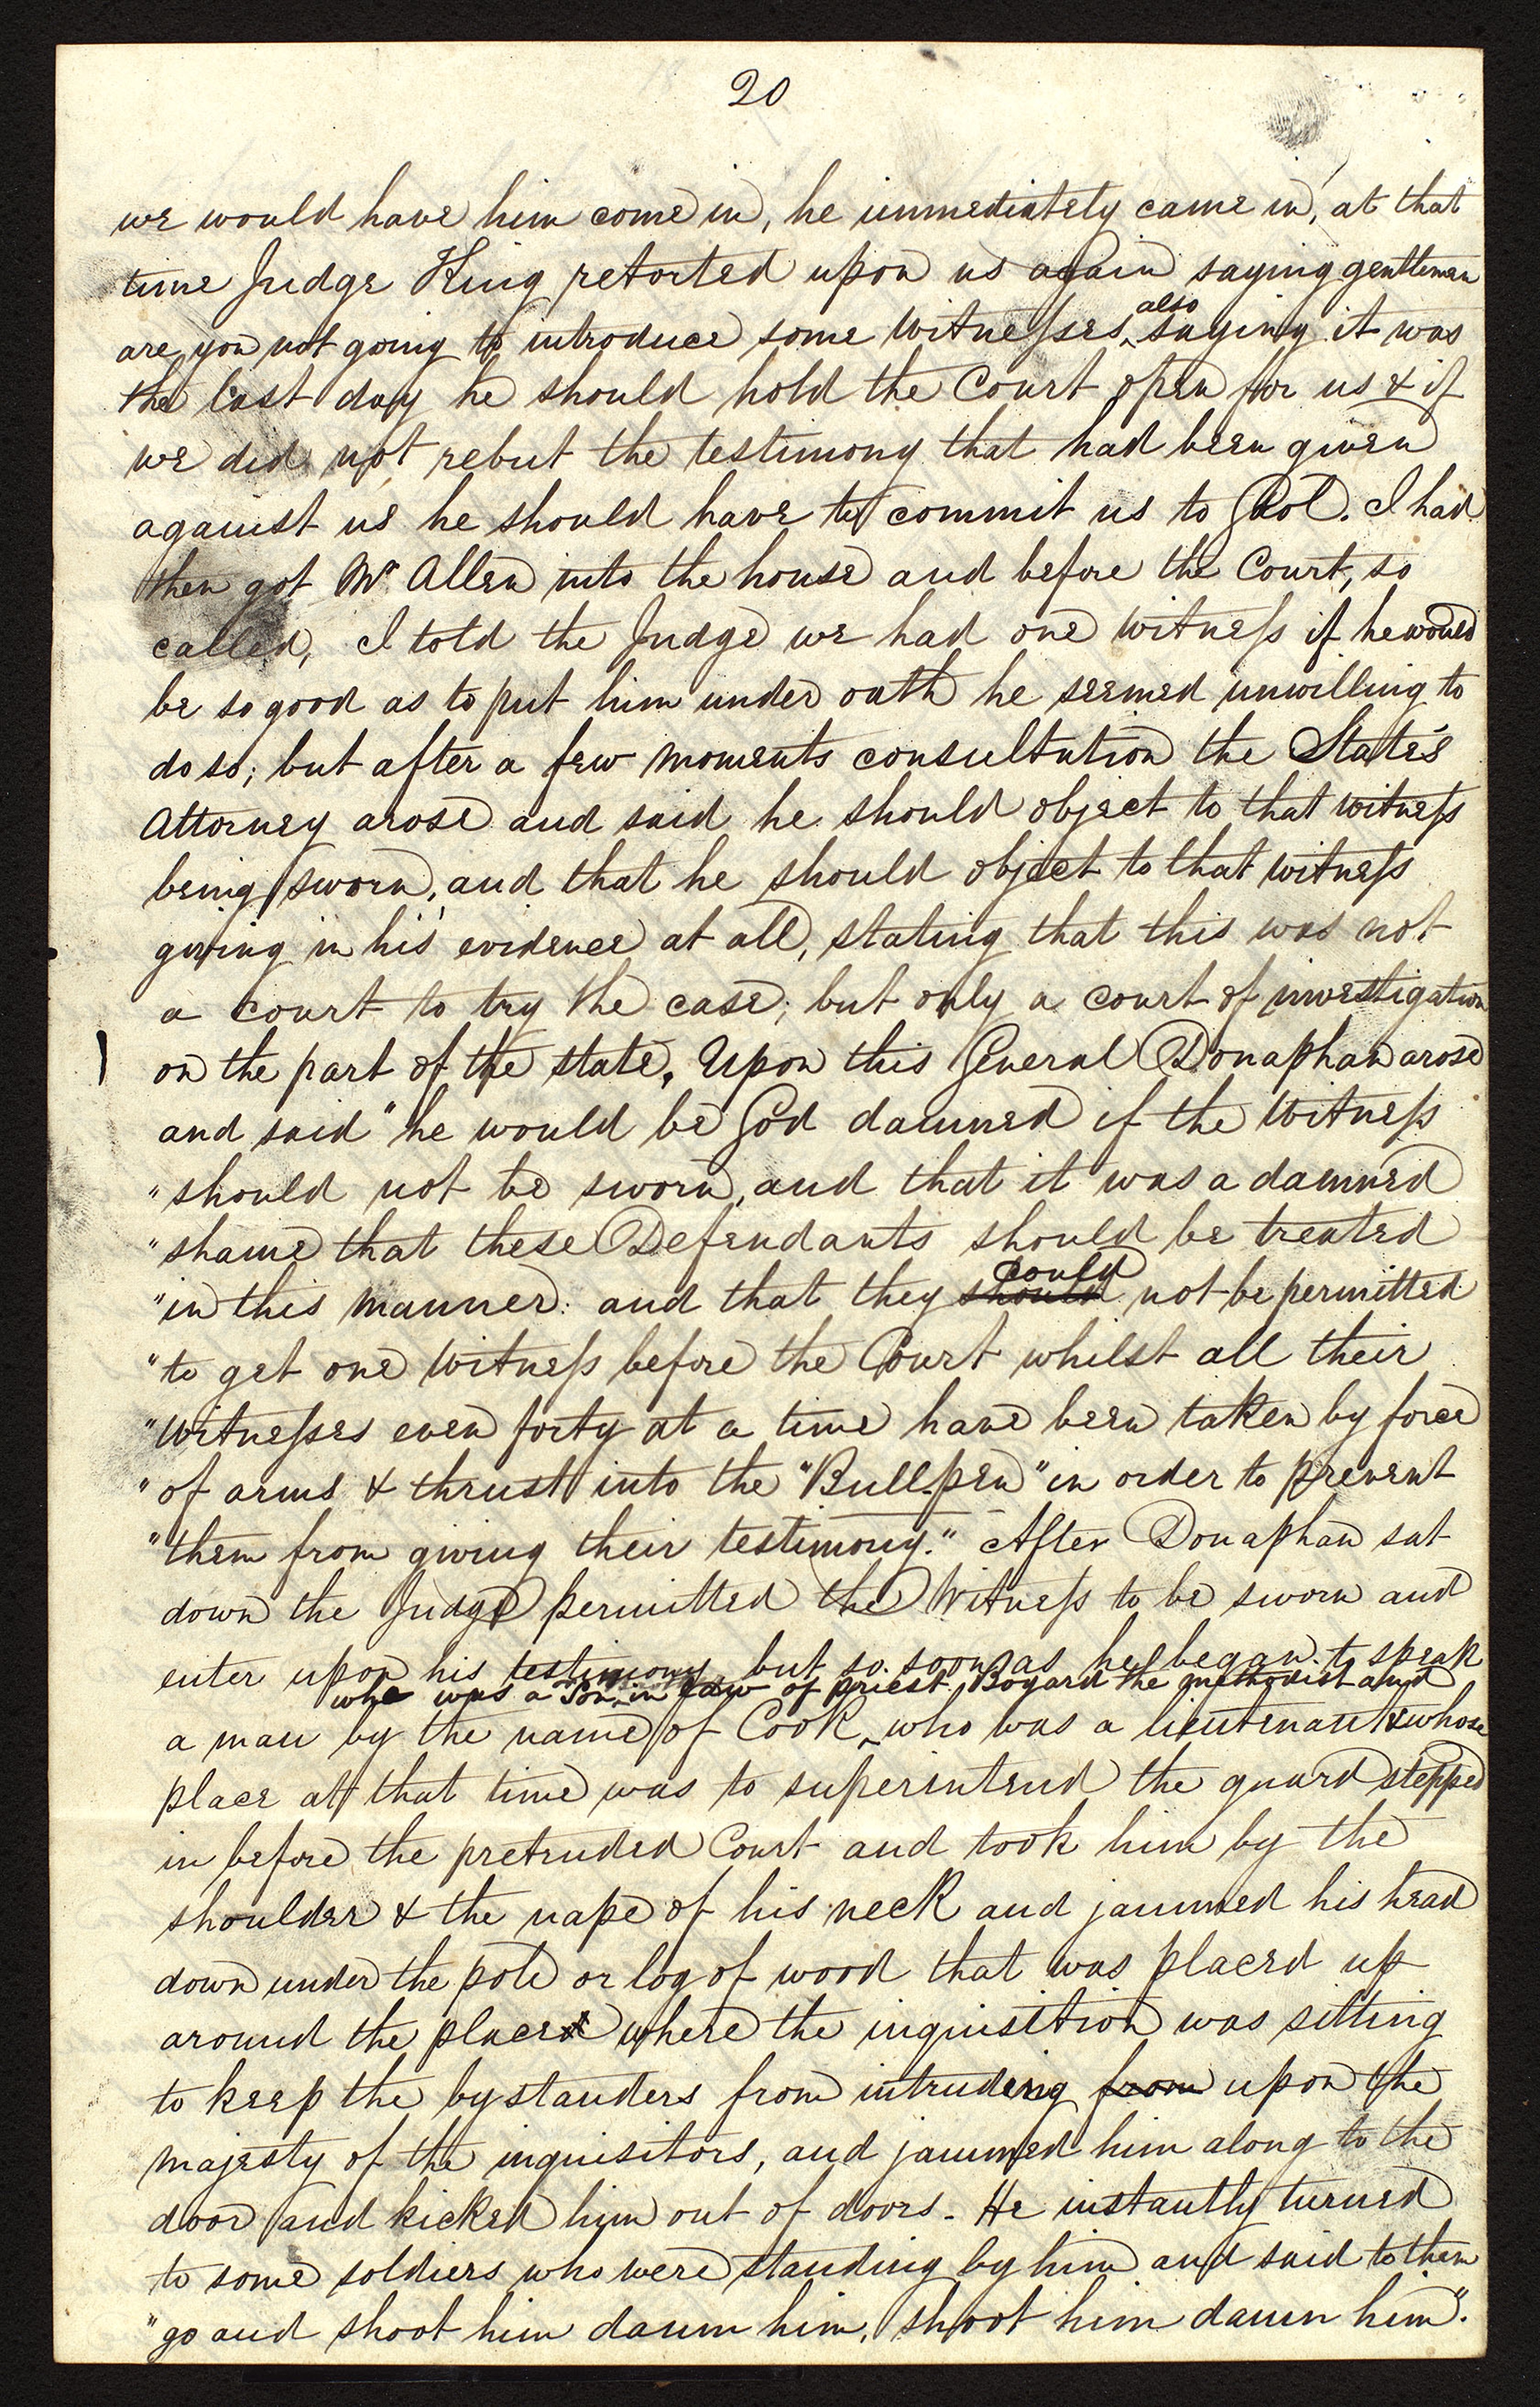 20
we would have him come in, he immediately came in, at that
time Judge King retorted upon us again saying gentlemen
also
are you not going to introduce some witnesses, saying it was
the last day he should hold the Court open for us & if
we did not rebut the testimony that had been given
against us he should have to commit us to Gaol. I had
then got Mr Allen into the house and before the Court, so
called, I told the Judge we had one witness if he would
be so good as to put him under oath he seemed unwilling to
do so; but after a few moments consultation the State's
Attorney arose and said he should object to that witness
being sworn, and that he should object to that witness
giving in his evidence at all, stating that this was not
a court to try the case; but only a court of investigation
on the part of the state, Upon this General Donaphan arose
and said "he would be God damned if the witness
"should not be sworn, and that it was a damned
"shame that these Defendants should be treated
could
"in this manner: and that they should not be permitted
"to get one witness before the Court whilst all their
"witnesses even forty at a time have been taken by force
"of arms & thrust into the "Bull-pen" in order to prevent
"them from giving their testimony." After Donaphan sat
down the Judge permitted the Witness to be sworn and
enter upon his testimony, but so soon as he began to speak
who was a Son in law of priest Bogard the methodist and
a man by the name of Cook, who was a lieutenant & whose
place at that time was to superintend the guard stepped
in before the pretended Court and took him by the
shoulder & the nape of his neck and jammed his head
down under the pole or log of wood that was placed up
around the place where the inquisition was sitting
to keep the bystanders from intruding from upon the
majesty of the inquisitors, and jammed him along to the
door and kicked him out of doors- He instantly turned
to some soldiers who were standing by him and said to them
"go and shoot him damn him, shoot him damn him".